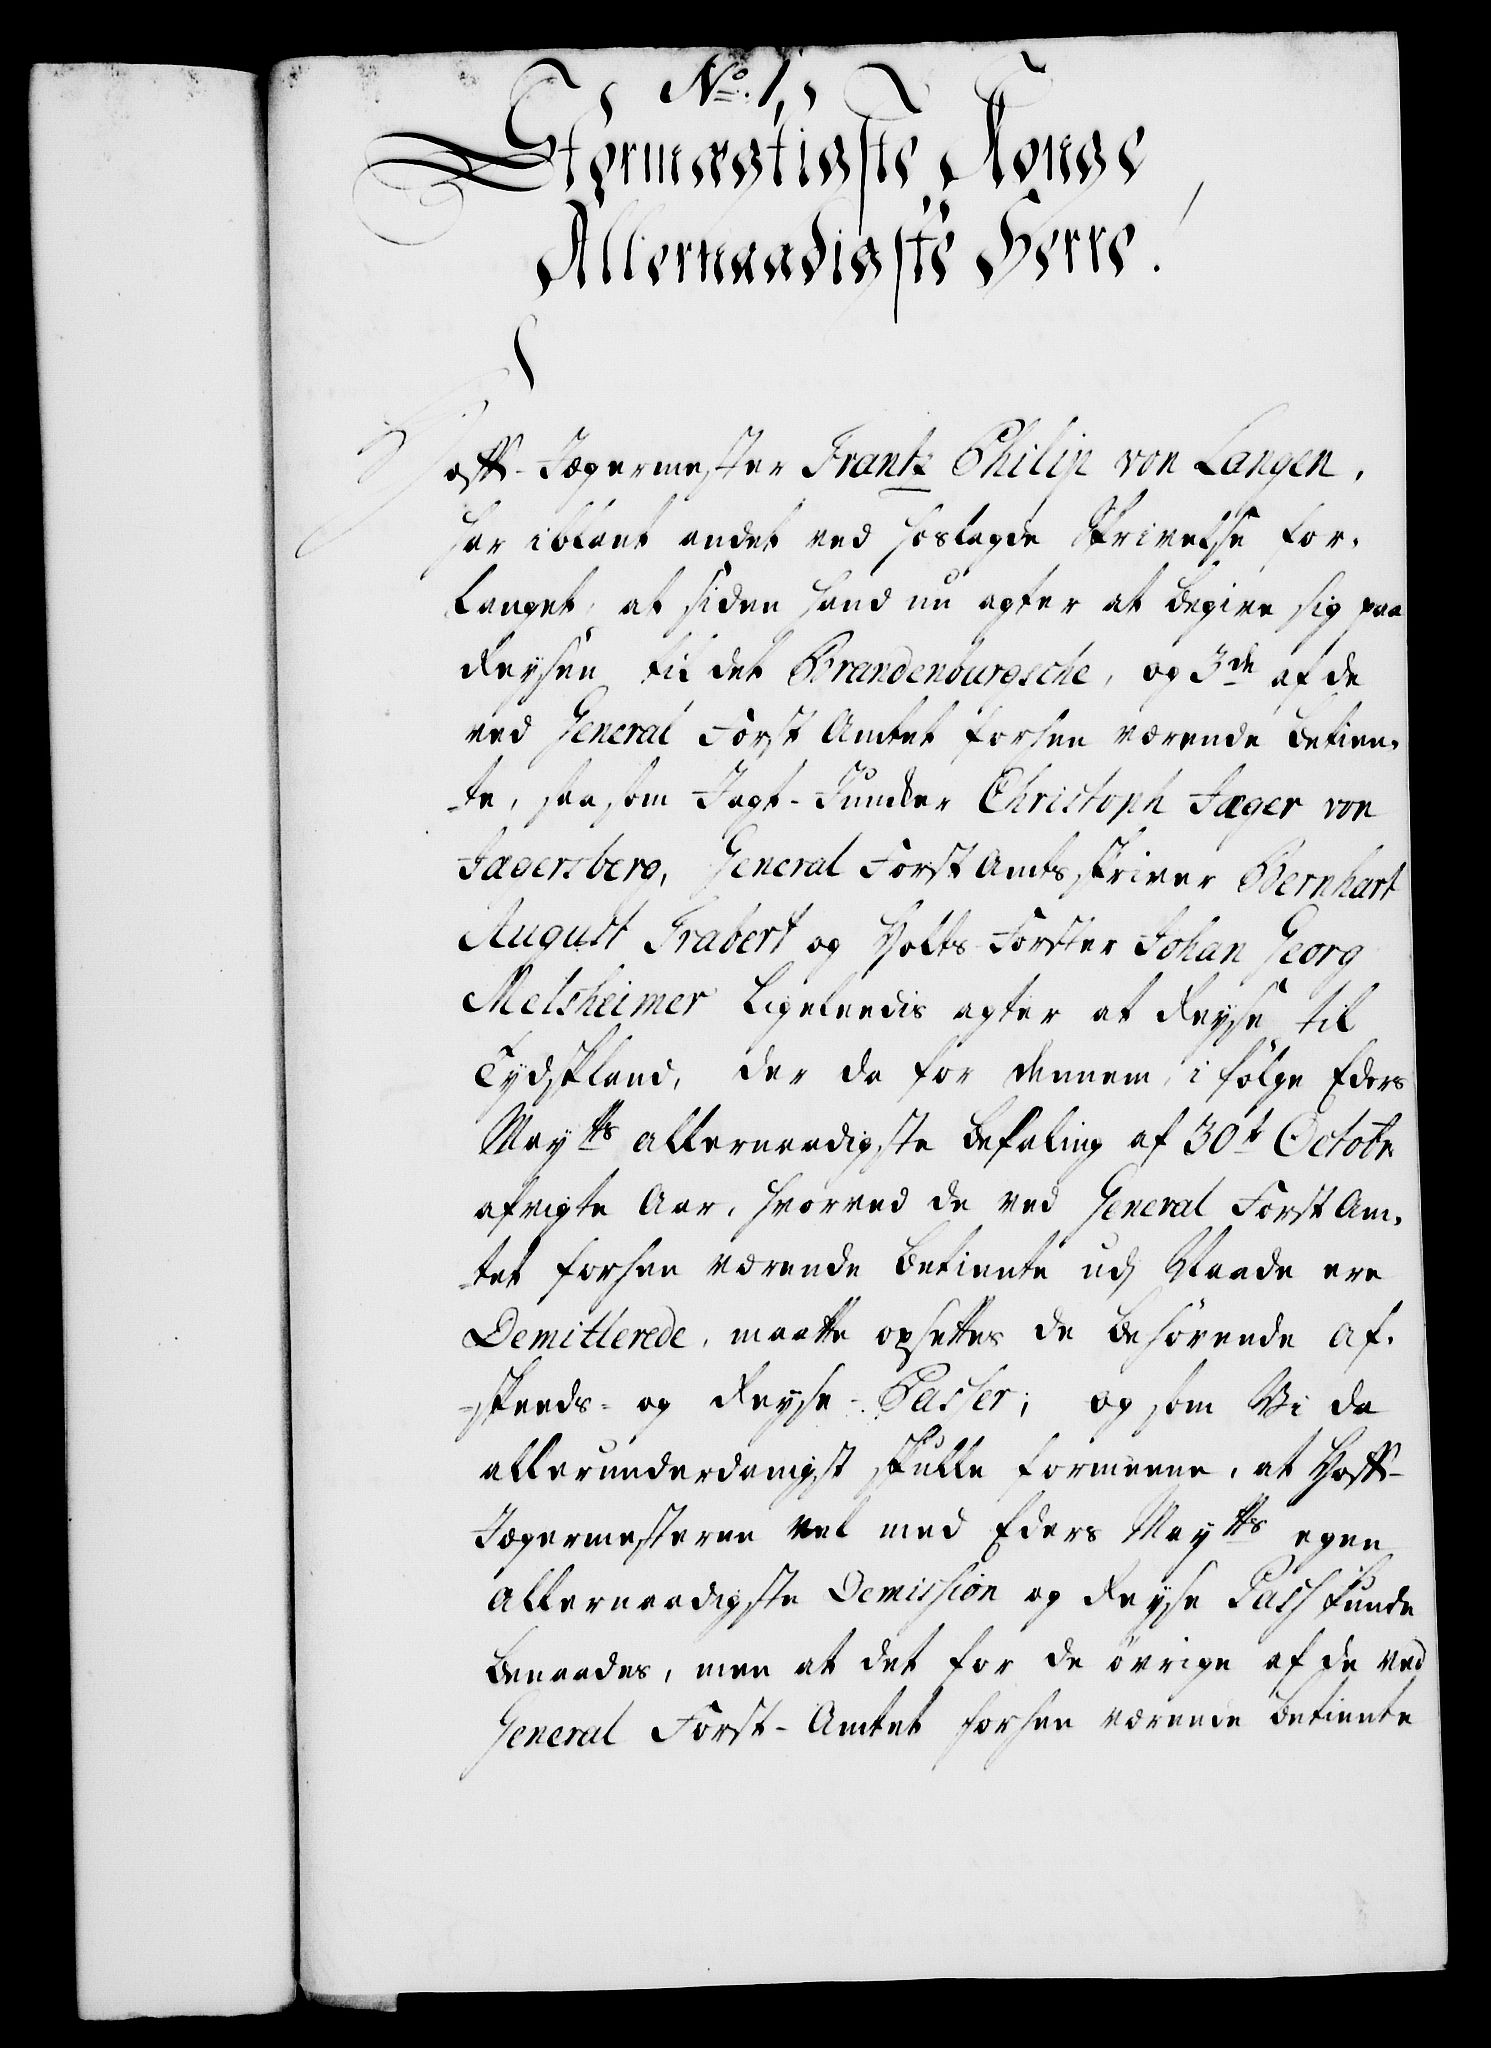 No. 1,
Stormægtigste Konge
Allernaadigste Herre!
Hoff-Jægermester Frantz Philip von Langen,
har iblant andet ved hoslagde Skrivelse for-
langet, at siden hand nu agter at begive sig paa
Reysen til det Brandenburgsche, og 3de af de
ved General Forst Amtet forhen værende Betien-
te, saasom Jagt-Juncker Christoph Jæger von
Jægersberg, General Forst Amts skriver Bernhart
August Trabert og Holts-Forster Johan Georg
Melsheimer ligeleedis agter at Reyse til
Tydskland, der da for dennem, i følge Eders
Maytts allernaadigste Befaling af 30t Octobr
afvigte Aar, hvorved de ved General Forst Am-
tet forhen værende Betiente udj Naade ere
Demitterede, maatte opsettes de behørende Af-
skeeds- og Reyse-Passer; og som Vi da
allerunderdanigst skulle formeene, at Hoff-
Jægermesteren vel med Eders Maytts egen
allernaadigste Demission og Reyse Pass kunde
benaades, men at det for de øvrige af de ved
General Forst-Amtet forhen værende Betiente